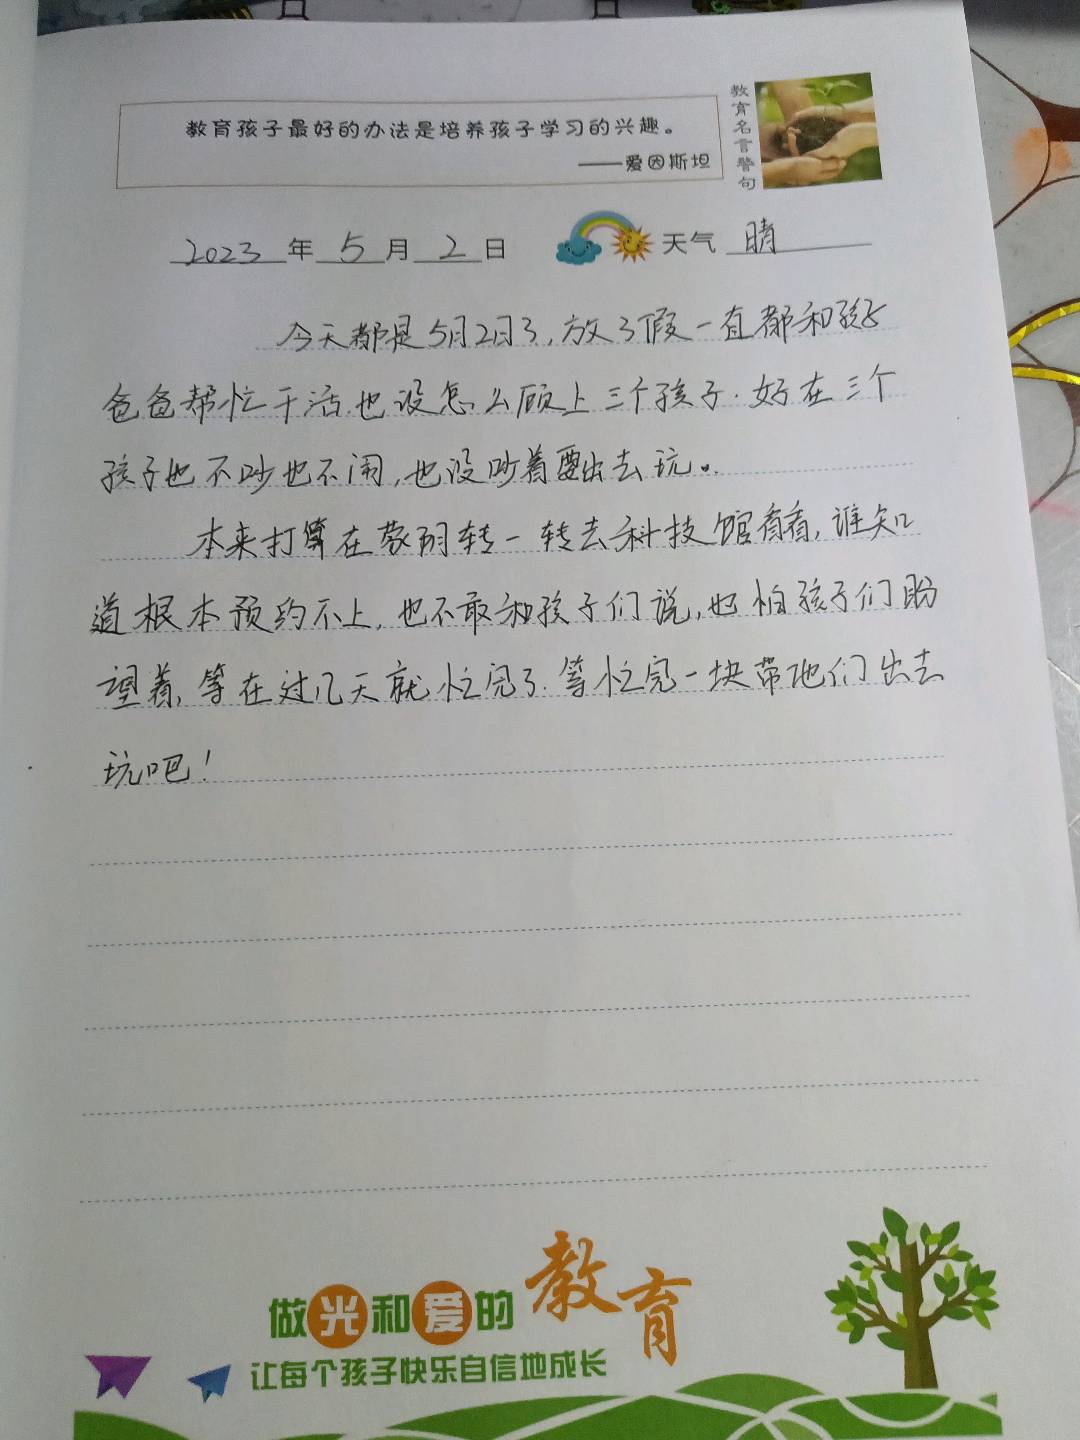 教育孩子最好的办法是培养孩子学习的兴趣。
——爱因斯坦
教育名言警句
2023年5月2日 天气 晴
今天都是5月2日了,放了假一直都和孩子
爸爸帮忙干活.也没怎么顾上三个孩子.好在三个
孩子也不吵也不闹,也没吵着要出去玩。
本来打算在蒙阴转一转去科技馆看看,谁知
道根本预约不上,也不敢和孩子们说,也怕孩子们盼
望着,等在过几天就忙完了.等忙完一块带他们出去
玩吧!
做光和爱的教育
让每个孩子快乐自信地成长